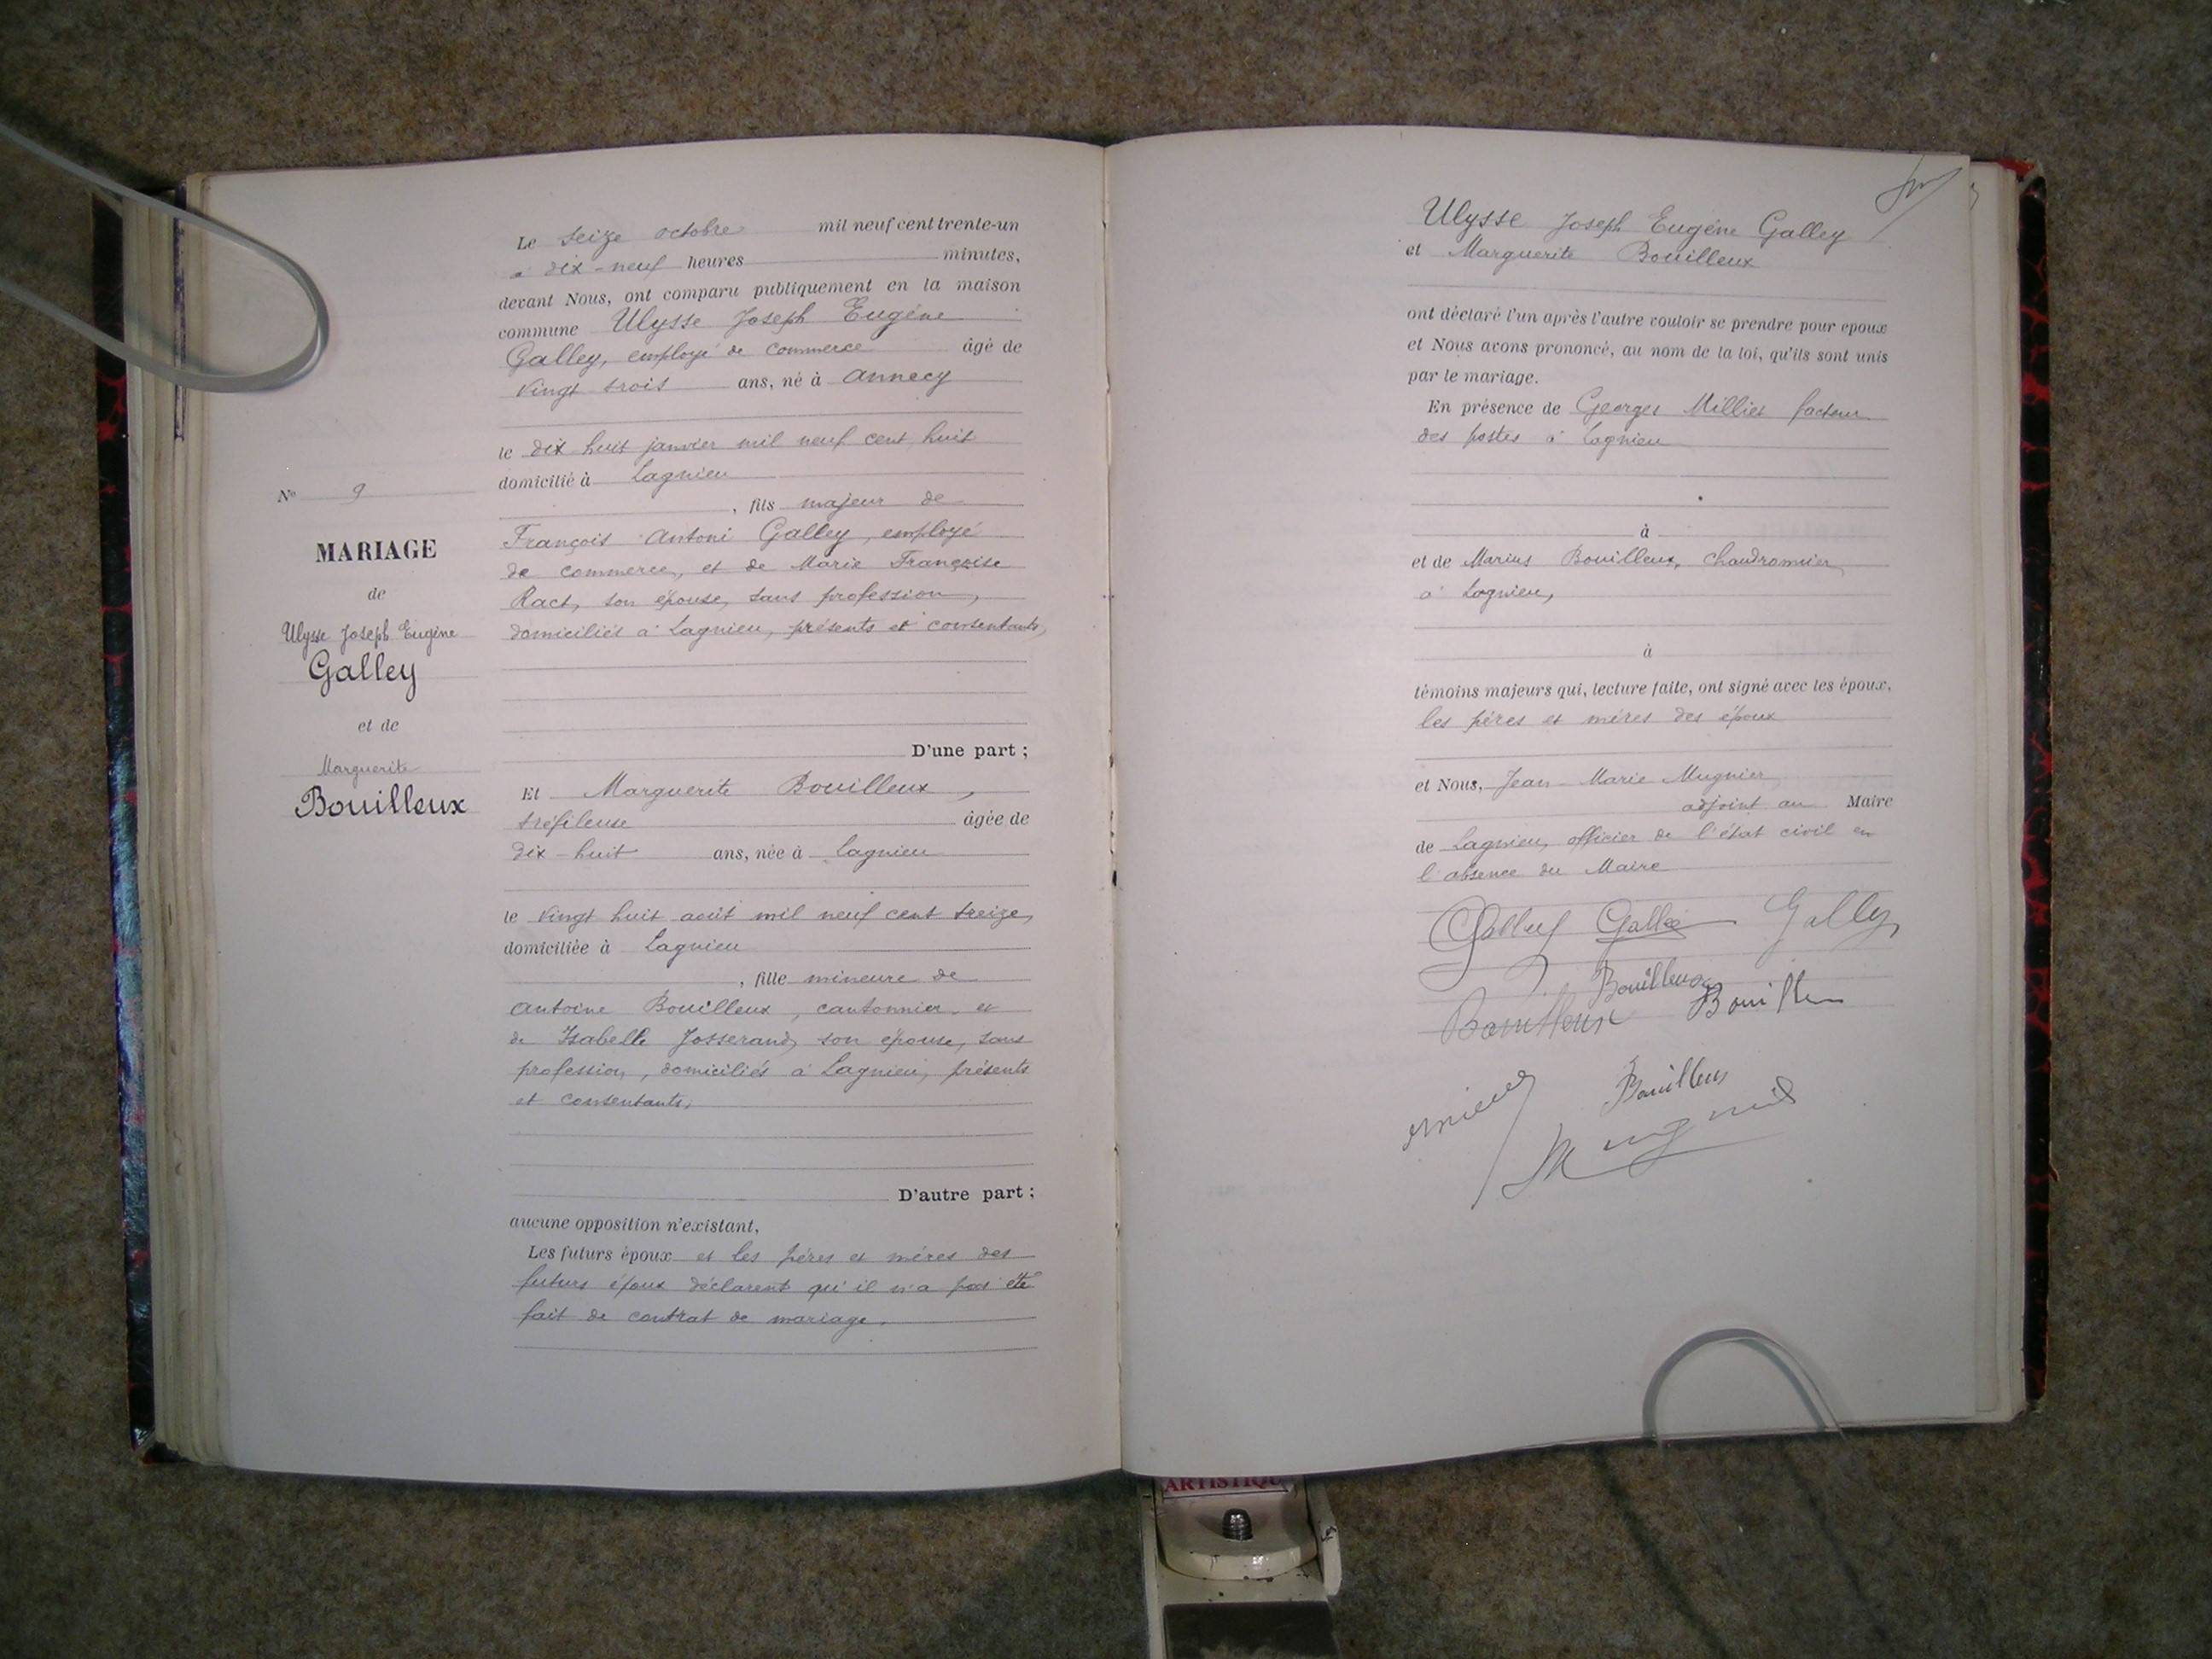 Le seize octobre mil neuf cent trente-un
à dix-neuf heures minutes,
devant Nous, ont comparu publiquement en la maison
commune Ulysse Joseph Eugène
Galley, employé de commerce âgé de
vingt trois ans, né à Annecy
le dix huit janvier mil neuf cent huit
domicilié à Lagnieu
, fils majeur de
François Antoni Galley, employé
de commerce, et de Marie Françoise
Ract, son épouse, sans profession,
domiciliés à Lagnieu, présents et consentants,
D'une part ;
Et Marguerite Bouilleux,
tréfileuse âgée de
dix-huit ans, née à Lagnieu
le vingt huit août mil neuf cent treize,
domiciliée à Lagnieu
, fille mineure de
Antoine Bouilleux, cantonnier, et
de Isabelle Josserand, son épouse, sans
profession, domiciliés à Lagnieu, présents
et consentants,
D'autre part ;
aucune opposition n'existant,
Les futurs époux et les pères et mères des
futurs époux déclarent qu'il n'a pas été
fait de contrat de mariage.
No 9
MARIAGE
de
Ulysse Joseph Eugène
Galley
et de
Marguerite
Bouilleux
Ulysse Joseph Eugène Galley
et Marguerite Bouilleux
ont déclaré l'un après l'autre vouloir se prendre pour epoux
et Nous avons prononcé, au nom de la loi, qu'ils sont unis
par le mariage.
En présence de Georges Milliet facteur
des postes à Lagnieu
à
et de Marius Bouilleux, chaudronnier,
à Lagnieu,
à
témoins majeurs qui, lecture faite, ont signé avec les époux,
les pères et mères des époux
et Nous, Jean-Marie Mugnier,
adjoint au Maire
de Lagnieu, officier de l'état civil en
l'absence du Maire
Galley Galley
Bouilleux
Bouilleux
Bouilleux
ARTISTIQU